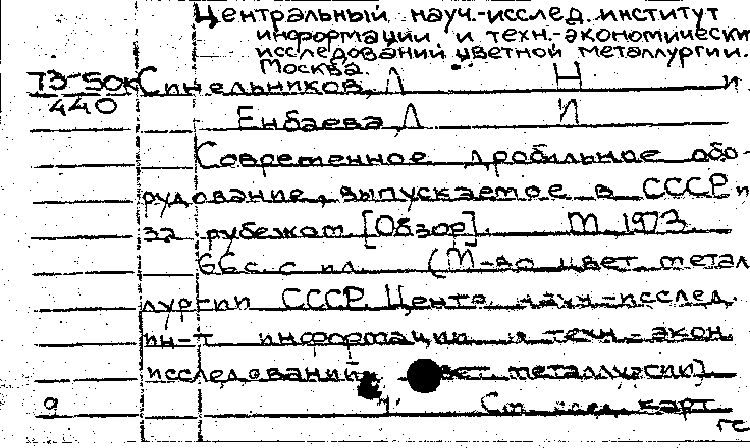 Центральный науч.-исслед. институт
информации и техн.-экономически
исследований цветной металлургии.
Москва.
ТЗ-50к Синельников, Л Н и
440
Енбаева, Л И
Современное дробильное обо-
рудование, выпускаемое в СССР и
за рубежом [Обзор]. М 1973
66 с. с ил. (М-во цвет. метал
лургии СССР. Центр. науч.-исслед.
ин-т информации и техн.-экон.
исследований цвет. металлургии)
9 Ст след. карт
гс